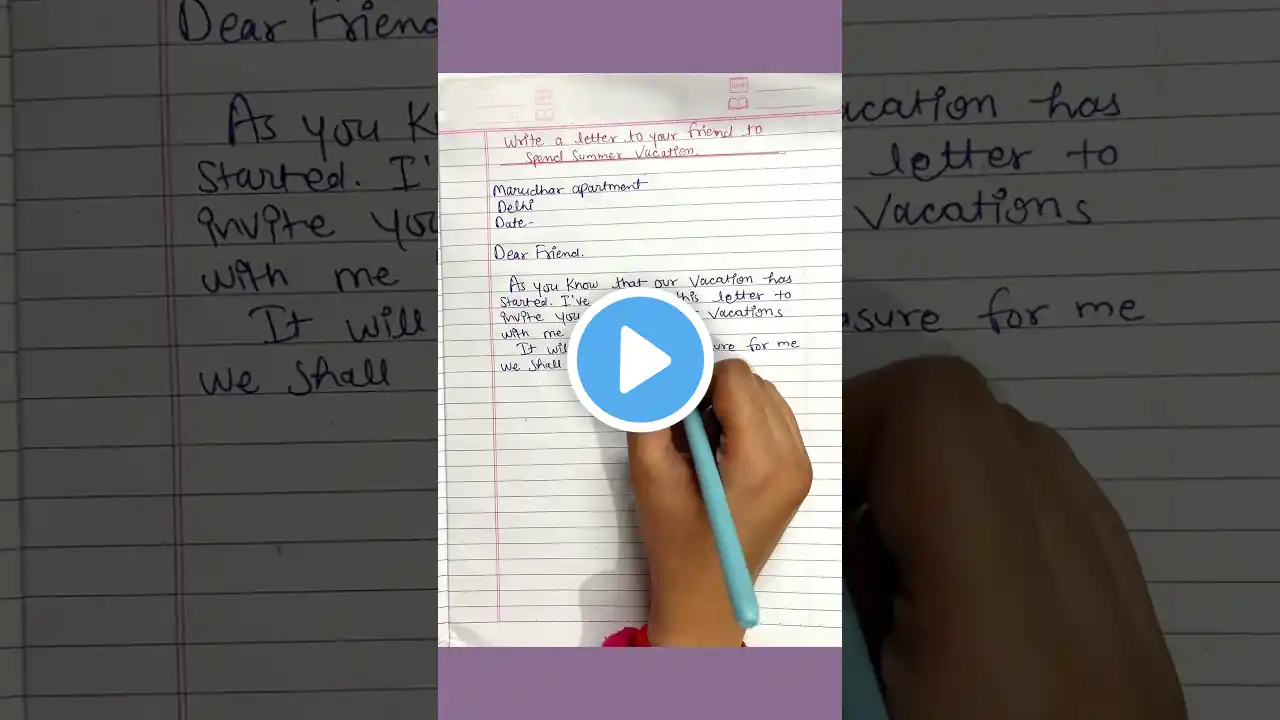 Write a letter to your friend to
Spend Summer Vacation.
Marudhar apartment
Delhi
Date-
Dear Friend.
As you know that our Vacation has
Started. I've this letter to
invite you Vacations
with me
It will for me
We Shall